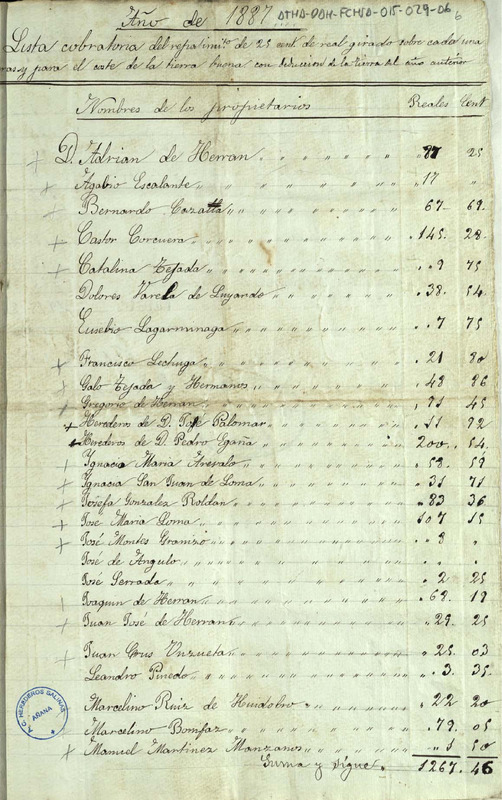 Año de 1887 ATHA-DAH-FCHSA-015-029-06
6
Lista cobratoria del repatimto de 25 cent de real girado sobre cada una
eras y para el coste de la tierra buena con deduccion de la tierra del año anterior
Nombres de los propietarios Reales Cent
D. Adrian de Herran " 87 25
Agabio Escalante 17 "
Bernardo Cozatta 67 69
Castor Corcuera 145 28
Catalina Tejada 9 75
Dolores Varela de Luyando 38 54
Eusebio Lagarminaga 7 75
Francisco Lechuga 21 80
Galo Tejada y Hermanos 48 96
Gregorio de Herran 71 45
Herederos de D. José Palomar 11 92
Herederos de D. Pedro Egaña 200 54
Ygnacia Maria Arevalo 58 59
Ygnacia San Juan de Loma 31 71
Josefa Gonzalez Roldan 83 36
José Maria Loma 107 15
José Montes Granizo 3 "
José de Angulo " "
José Serrada 2 25
Joaquin de Herran 69 19
Juan José de Herran 29 25
Juan Crus Unzueta 25 03
Leandro Pinedo 3 35
Marcelino Ruiz de Huidobro 22 20
Marcelino Bonifaz 79 05
Manuel Martinez Manzanos 1 50
Suma y sigue 1267 46
C. HEREDEROS SALINAS
AÑANA